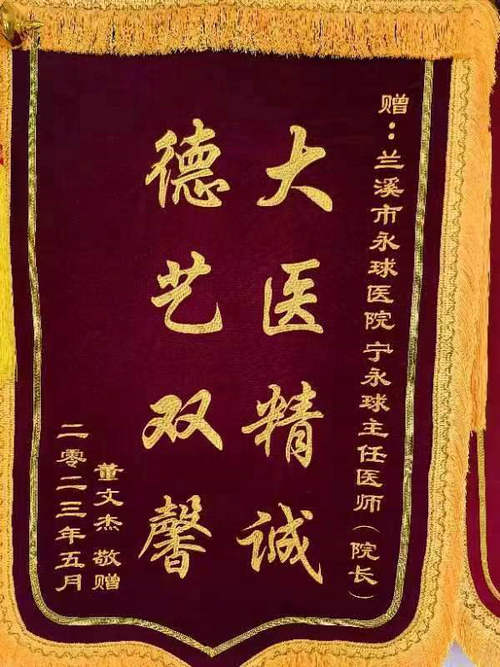 赠：兰溪市永球医院宁永球主任医师（院长）
大医精诚
德艺双馨
董文杰 敬赠
二零二三年五月